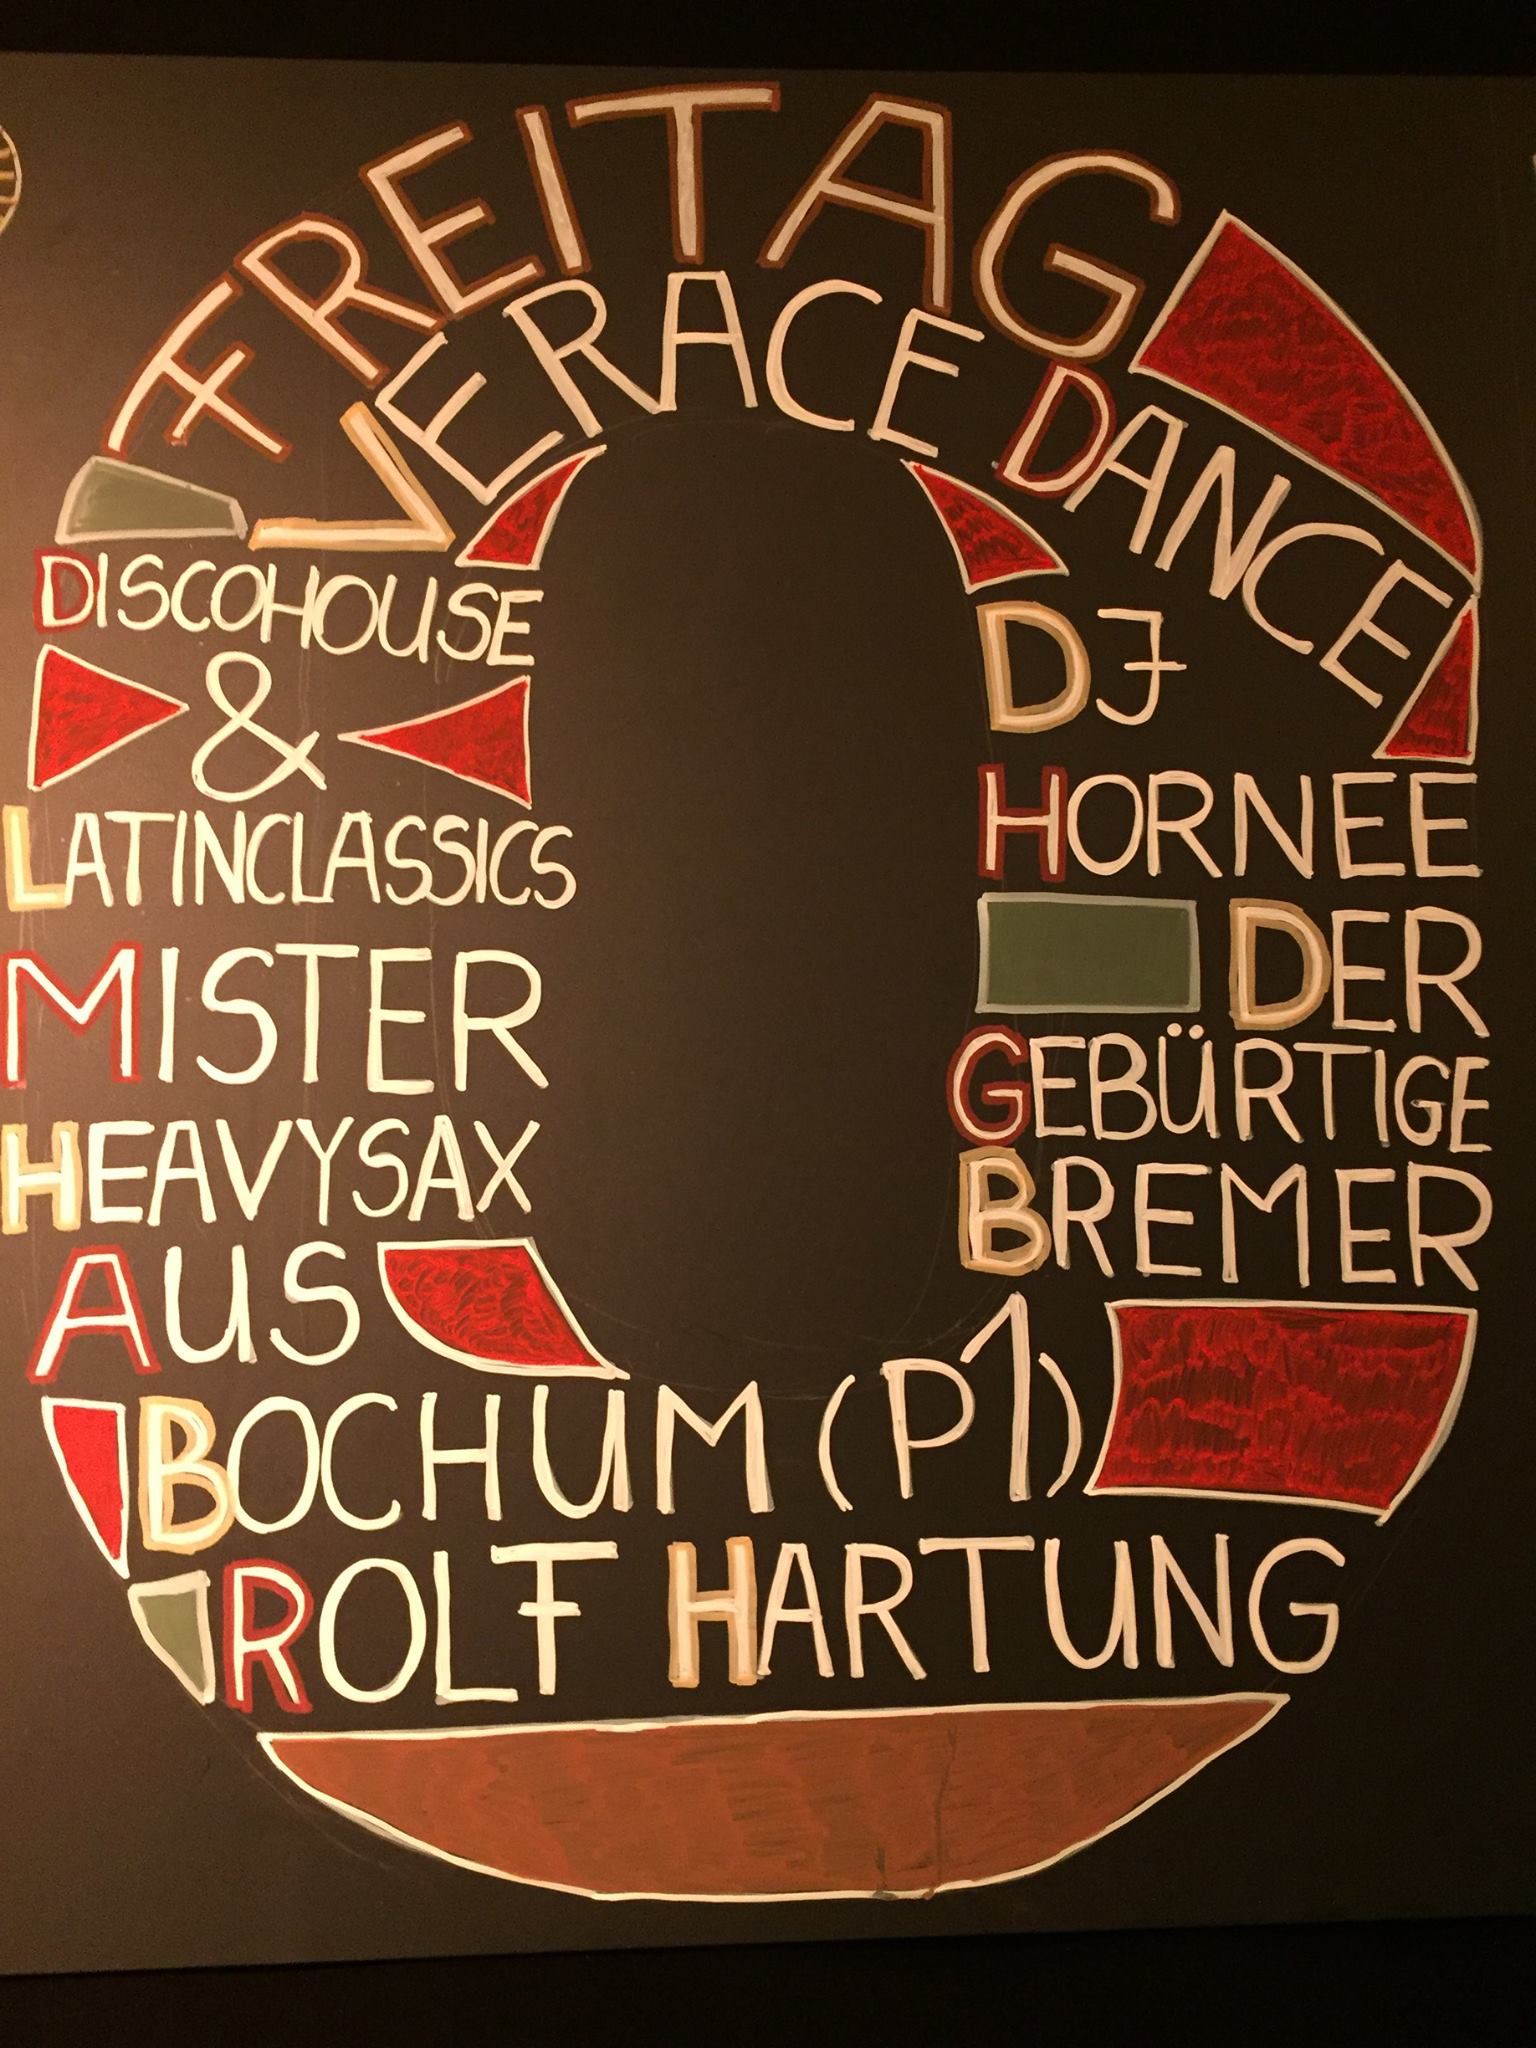 FREITAG
VERACE DANCE
DISCOHOUSE
&
LATINCLASSICS
DJ
HORNEE
DER
GEBÜRTIGE
BREMER
MISTER
HEAVYSAX
AUS
BOCHUM (P1)
ROLF HARTUNG